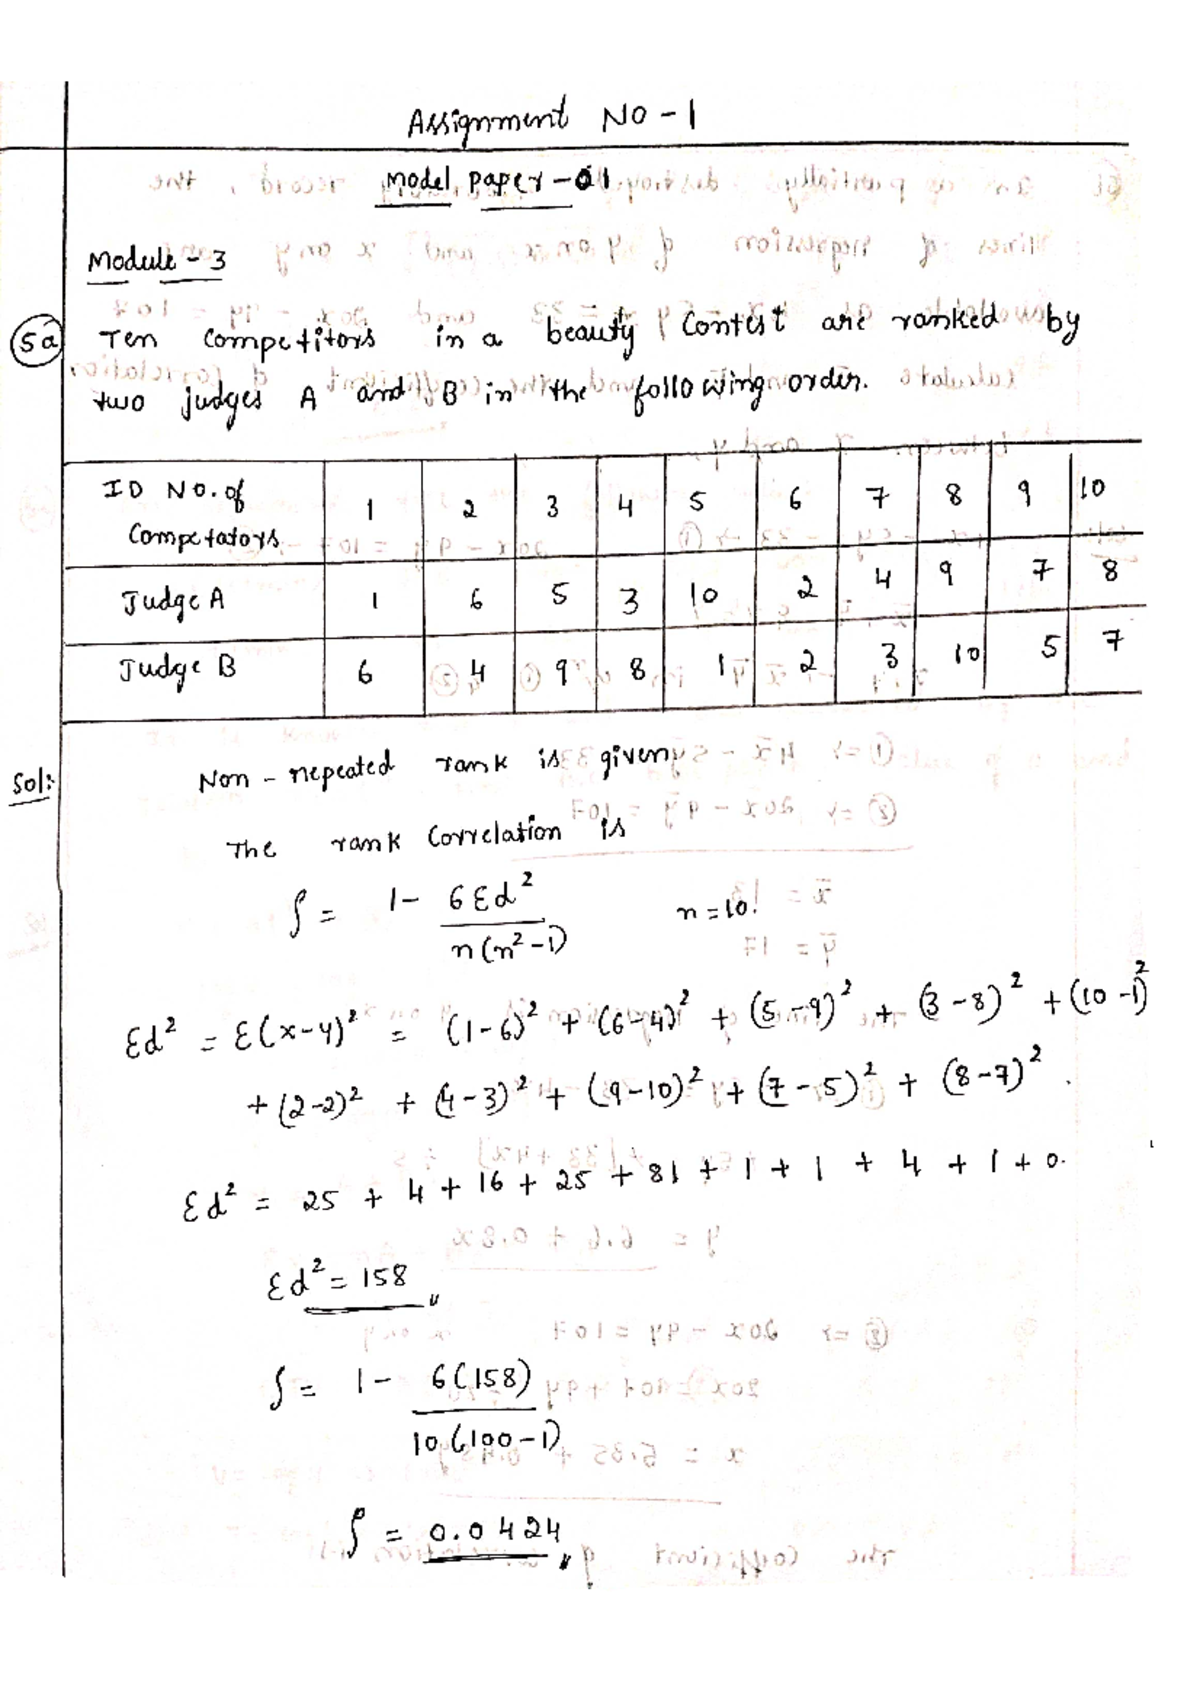 Assignment NO - 1
Model paper - 01
Module - 3
5a Ten Competitors in a beauty Contest are ranked by
two judges A and B in the following order.
ID NO. of Competators 1 2 3 4 5 6 7 8 9 10
Judge A 1 6 5 3 10 2 4 9 7 8
Judge B 6 4 9 8 1 2 3 10 5 7
Sol:- Non - repeated rank is given
The rank Correlation is
ρ = 1 - 6Σd² / n(n² - 1) n = 10.
Σd² = Σ(x-y)² = (1-6)² + (6-4)² + (5-9)² + (3-8)² + (10-1)²
+ (2-2)² + (4-3)² + (9-10)² + (7-5)² + (8-7)².
Σd² = 25 + 4 + 16 + 25 + 81 + 1 + 1 + 4 + 1 + 0.
Σd² = 158
ρ = 1 - 6(158) / 10(100-1)
ρ = 0.0424